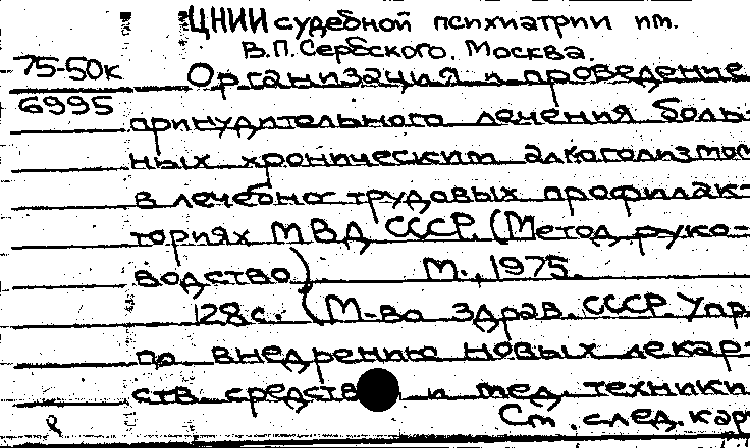 ЦНИИ судебной психиатрии им.
В.П. Сербского. Москва.
75-50к Организация и проведение
6995 принудительного лечения боль-
ных хроническим алкоголизмом
в лечебно-трудовых профилак-
ториях МВД СССР. (Метод. руко-
водство) М., 1975.
128 с. (М-во здрав. СССР. Упр.
по внедрению новых лекар-
ств. средств и мед. техники
См. след. кар